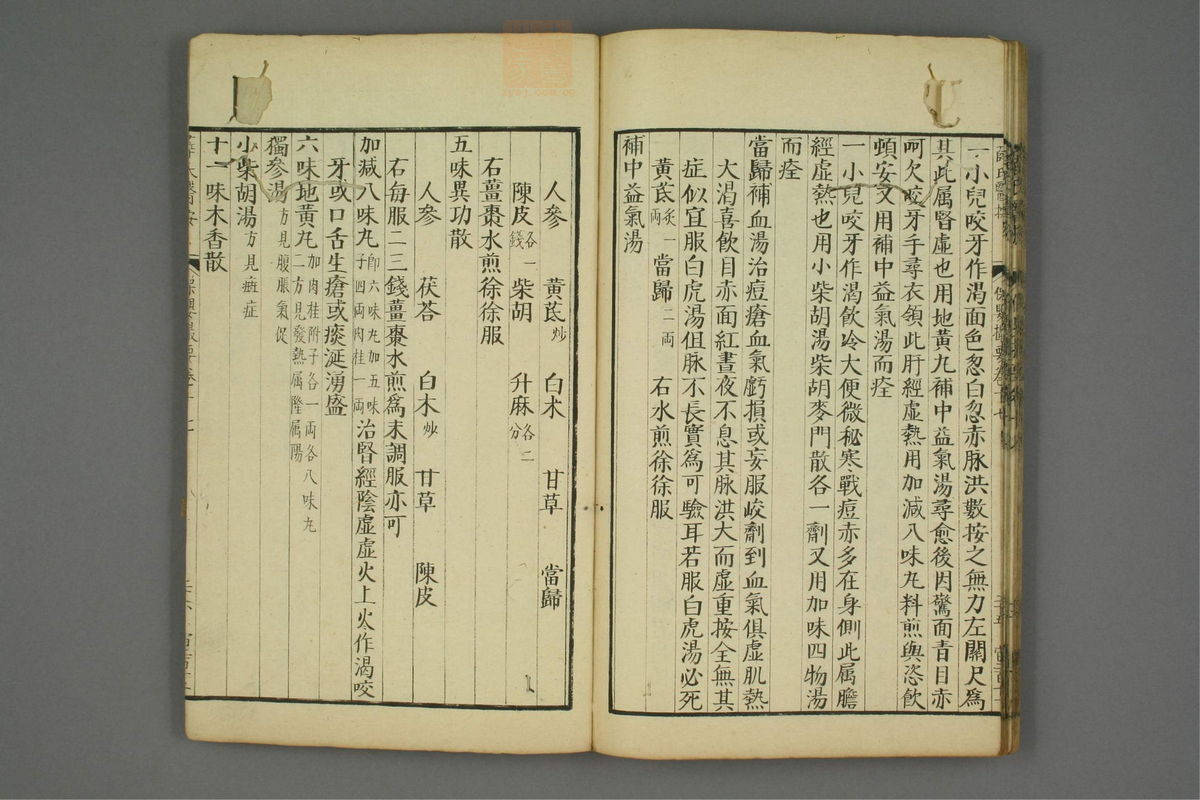 一小兒咬牙作渴面色忽白忽赤脉洪數按之無力左關尺爲
甚此属腎虛也用地黃九補中益氣湯尋愈後因驚面青目赤
呵欠咬牙手尋衣領此肝經虛熱用加减八味九料煎與恣飲
頓安又用補中益氣湯而痊
一小兒咬牙作渴飲冷大便微秘寒戰痘赤多在身側此属膽
經虛熱也用小柴胡湯柴胡麥門散各一劑又用加味四物湯
而痊
當歸補血湯治痘瘡血氣虧損或妄服峻劑到血氣俱虛肌熱
大渴喜飲目赤面紅晝夜不息其脉洪大而虛重按全無其
症似宜服白虎湯但脉不長實爲可驗耳若服白虎湯必死
黃茋炙一兩 當歸二兩 右水煎徐徐服
補中益氣湯
人參 黃茋炒 白术 甘草 當歸
陳皮各一錢 柴胡 升麻各二分
右薑棗水煎徐徐服
五味異功散
人參 茯苓 白木炒 甘草 陳皮
右每服二三錢薑棗水煎爲末調服亦可
加减八味九即六味九加五味子四兩肉桂一兩治腎經陰虛虛火上火作渴咬
牙或口舌生瘡或痰涎湧盛
六味地黃九加肉桂附子各一兩各八味九二方見發熱属陰属陽
獨參湯方見腹脹氣促
小柴胡湯方見癍症
十一味木香散